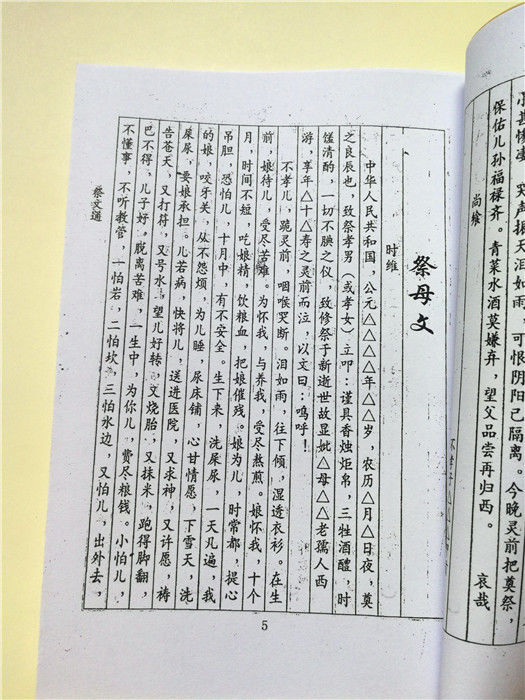 心甚惨凄，哭声振天泪如雨，可恨阴阳已隔离。今晚灵前把奠祭，
保佑儿孙福禄齐。青菜水酒莫嫌弃，望父品尝再归西。
尚飨
哀哉
祭母文
时维
中华人民共和国，公元△△△△年△△岁，农历△月△日夜，奠
之良辰也，致祭孝男（或孝女）立叩：谨具香烛炬帛，三牲酒醴，时
馐清酌，一切不腆之仪，致修祭于新逝世故显妣△母△△老孺人西
游，享年△十△寿之灵前而泣，以文曰：呜呼！
不孝儿，跪灵前，咽喉哭断。泪如雨，往下倾，湿透衣衫。在生
前，娘待儿，受尽苦难。为怀我，与养我，受尽熬煎。娘怀我，十个
月，时间不短，吃娘精，饮粮血，把娘催残。娘为儿，时常都，提心
吊胆，恐怕儿，十月中，有不安全。生下来，洗屎尿，一天几遍，我
的娘，咬牙关，从不怨烦，为儿睡，尿床铺，心甘情愿，下雪天，洗
屎尿，要娘承担。儿若病，快将儿，送进医院，又求神，又许愿，祷
告苍天，又打符，又号水，望儿好转，又烧胎，又抹米，跑得脚翻，
巴不得，儿子好。脱离苦难，一生中，为你儿，费尽粮钱。小怕儿，
不懂事，不听教管，一怕岩，二怕坎，三怕水边，又怕儿，出外去，
祭文选
5